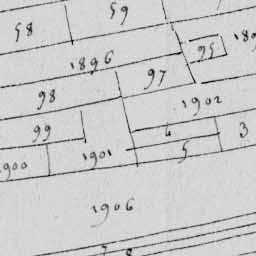 59
58
1896
95
189
98
97
1902
99
4
3
1900
1901
5
1906
7
8